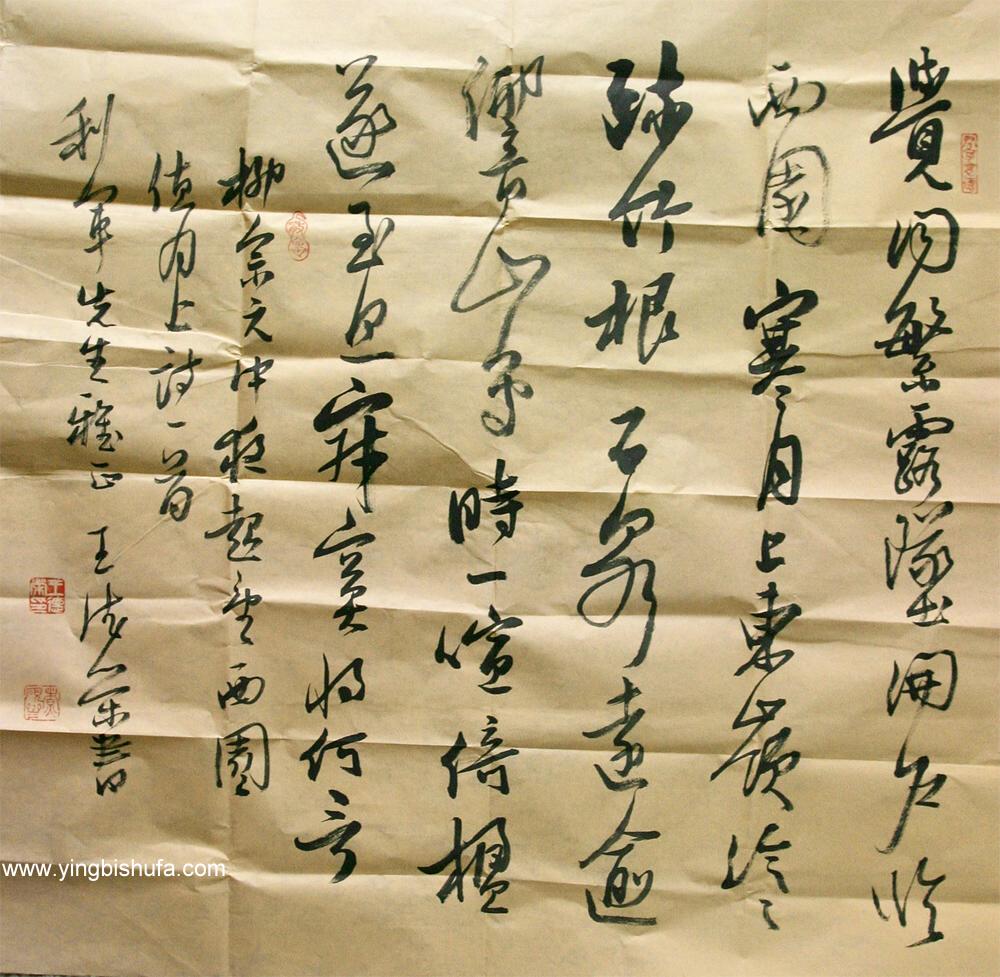 覺聞繁露墜開户临
西園寒月上東嶺泠泠
疏竹根石泉遠逾
響山鳥時一喧倚楹
遂至旦寂寞将何言
柳宗元中夜起望西園
值月上诗一首
利军先生雅正 王德荣書
www.yingbishufa.com